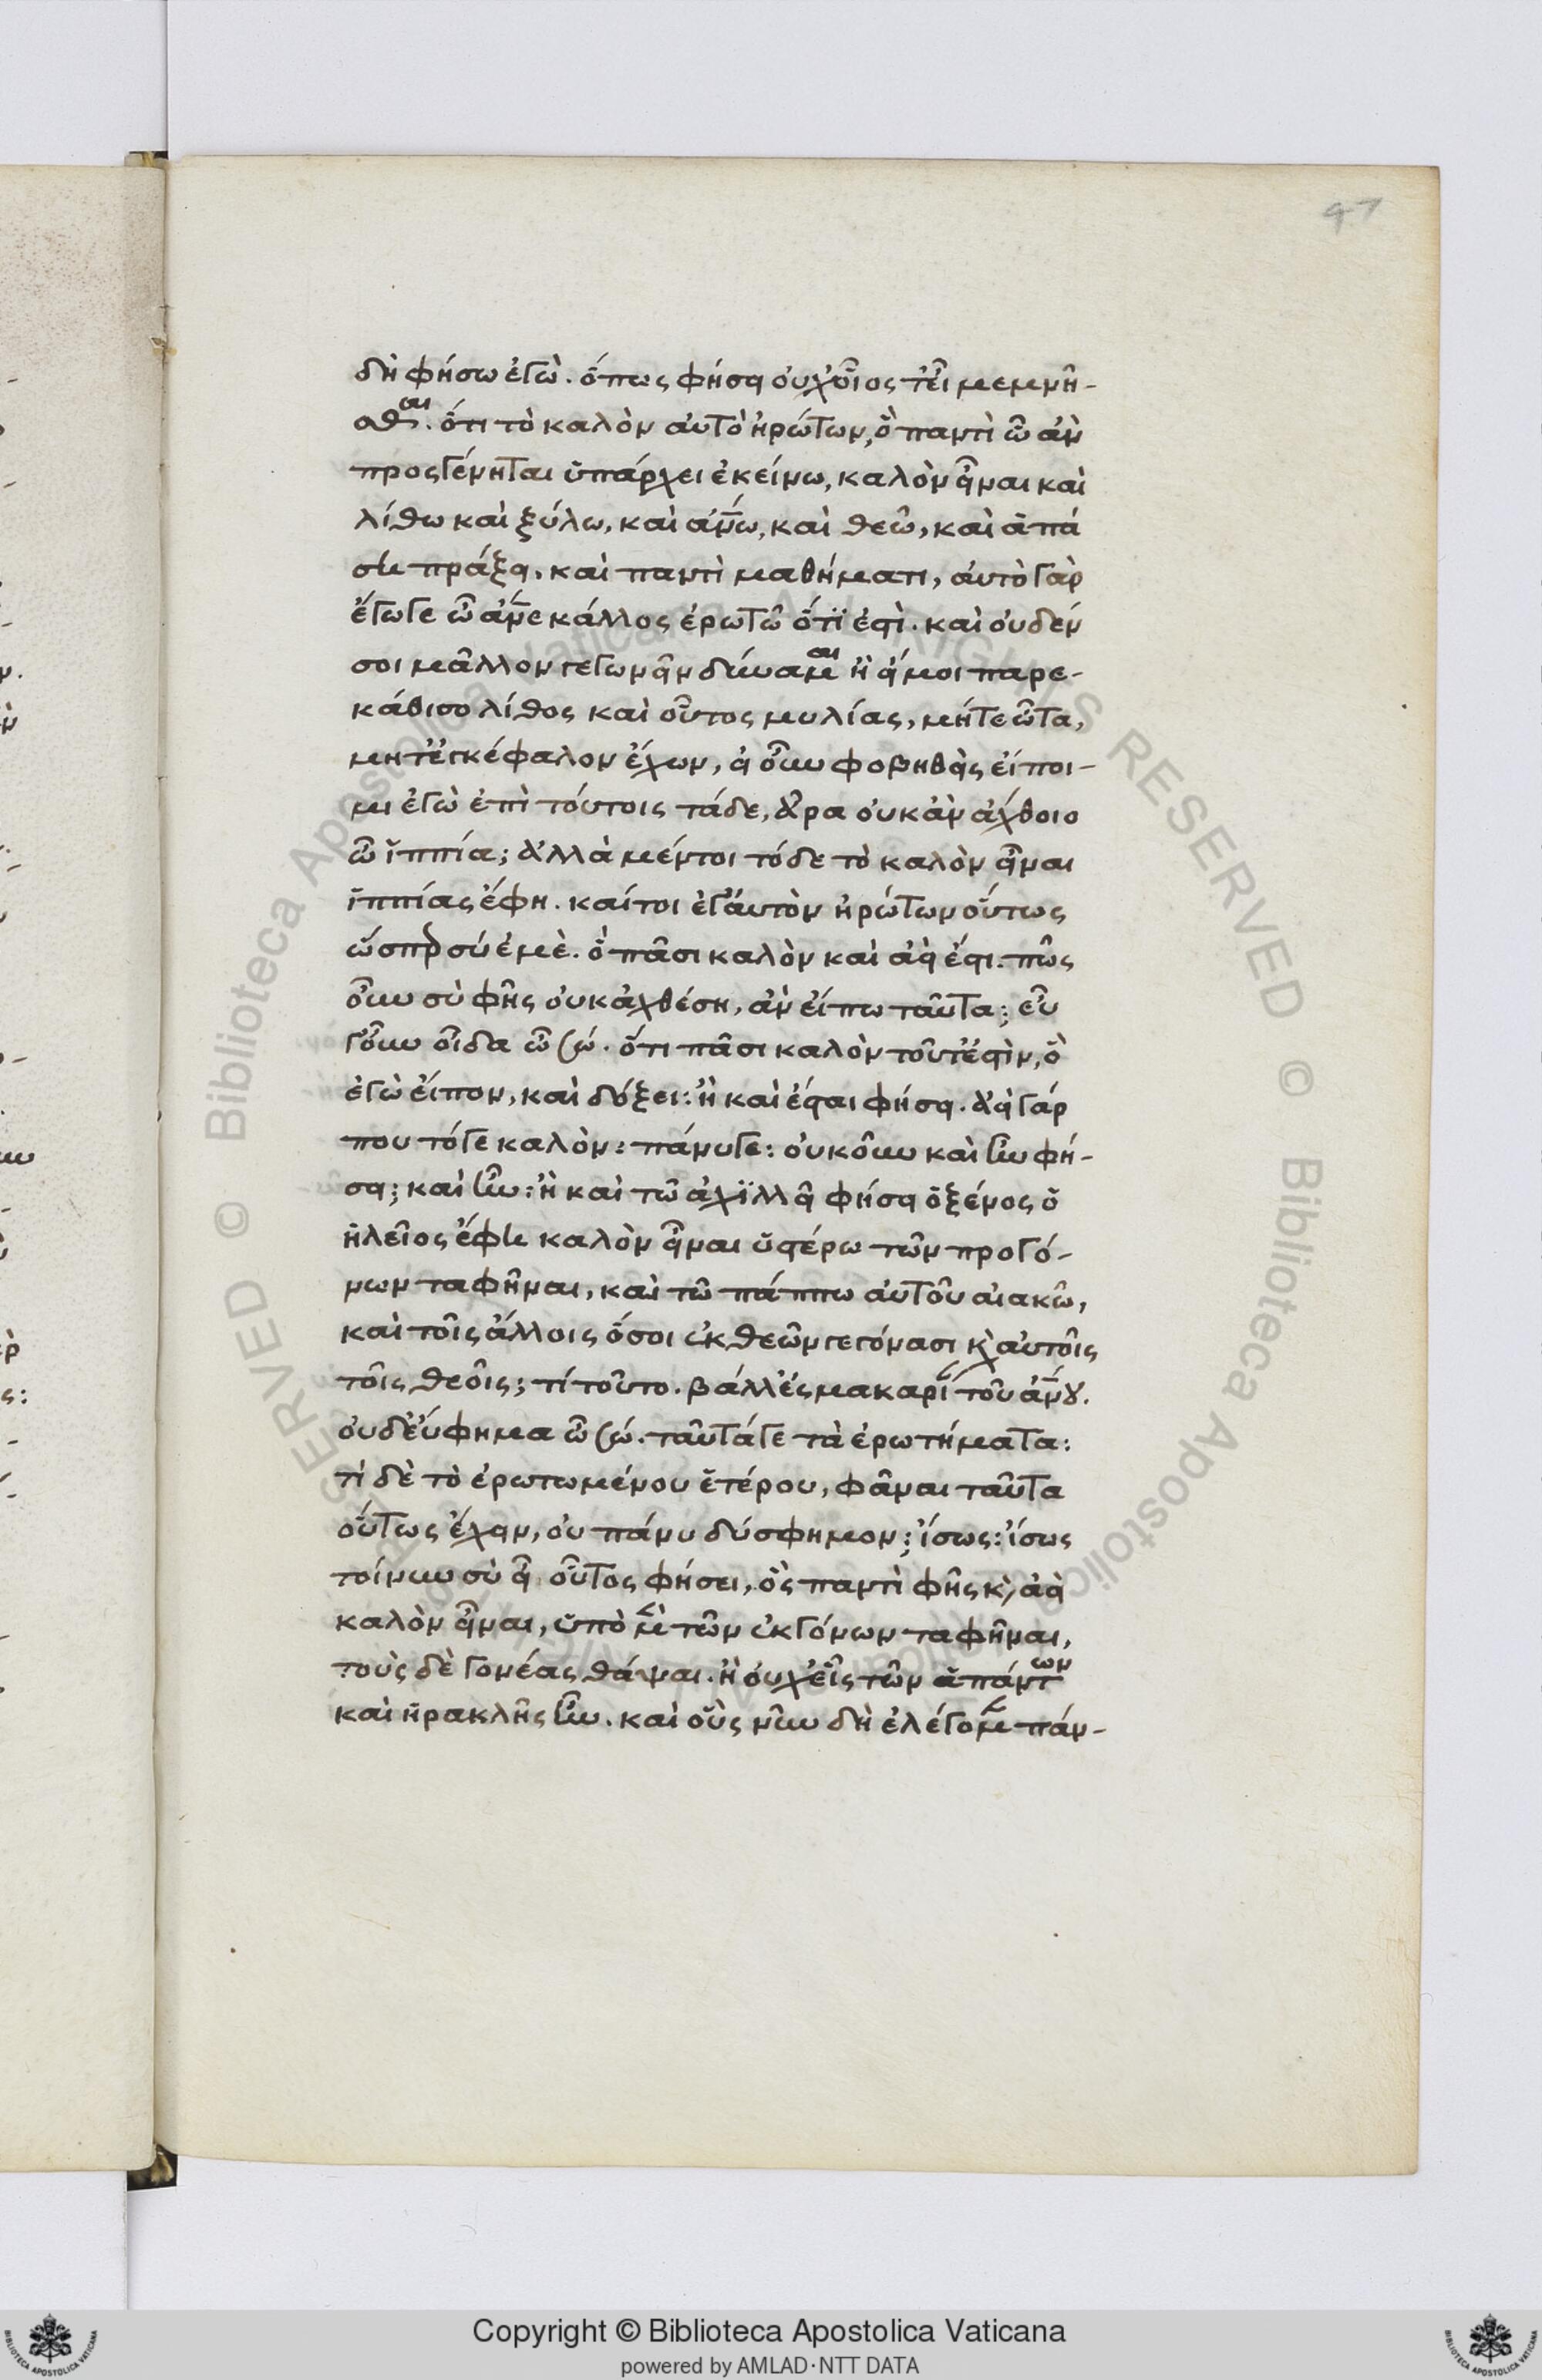 97
δὴ φήσω ἐγὼ. ὅπως φήσει οὐχ' οἷός τ' εἶ μεμνῆ-
σθαι. ὅτι τὸ καλὸν αὐτὸ ἠρώτων, ὃ παντὶ ὧ ἂν
προςγένηται ὑπάρχει ἐκείνω, καλὸν εἶναι καὶ
λίθω καὶ ξύλω, καὶ ἀν̅ω, καὶ θεῶ, καὶ ἁπά
ση πράξει, καὶ παντὶ μαθήματι, αὐτὸ γὰρ
ἔγωγε ὦ ἄν̅ε κάλλος ἐρωτῶ ὅ,τι ἐστὶ. καὶ οὐδέν
σοι μᾶλλον γεγωνεῖν δύναμαι ἢ εἴ μοι παρε-
κάθισο λίθος καὶ οὗτος μυλίας, μήτε ὦτα,
μήτ' ἐγκέφαλον ἔχων, εἰ οὖν φοβηθεὶς εἴποι-
μι ἐγὼ ἐπὶ τούτοις τάδε, ἆρα οὐκ ἂν ἄχθοιο
ὦ ἱππία; ἀλλὰ μέντοι τόδε τὸ καλὸν εἶναι
ἱππίας ἔφη. καίτοι ἐγὼ αὐτὸν ἠρώτων οὕτως
ὥσπερ σύ ἐμὲ. ὃ πᾶσι καλὸν καὶ ἀεὶ ἐστι. πῶς
οὖν σὺ φῆς οὐκ ἀχθέση, ἂν εἴπω ταῦτα; εὖ
γοῦν οἶδα ὦ σώ. ὅτι πᾶσι καλὸν τοῦτ' ἐστὶν, ὃ
ἐγὼ εἶπον, καὶ δόξει: ἢ καὶ ἔσται φήσει. ἀεὶ γάρ
που τόγε καλὸν: πάνυγε: οὐκοῦν καὶ ἦν φή-
σει; καὶ ἦν: ἢ καὶ τῶ ἀχιλλεῖ φήσει ὁ ξένος ὁ
ἠλεῖος ἔφη καλὸν εἶναι ὑστέρω τῶν προγό-
νων ταφῆναι, καὶ τῶ πάππω αὐτοῦ αἰακῶ,
καὶ τοῖς ἄλλοις ὅσοι ἐκ θεῶν γεγόνασι κ' αὐτοῖς
τοῖς θεοῖς; τί τοῦτο. βάλλ' ἐς μακαρί τοῦ ἀν̅ου.
οὐδ' εὔφημα ὦ σώ. ταῦτά γε τὰ ἐρωτήματα:
τί δὲ τὸ ἐρωτωμένου ἑτέρου, φᾶναι ταῦτα
οὕτως ἔχειν, οὐ πάνυ δύσφημον; ἴσως: ἴσως
τοίνυν σὺ εἶ οὗτος φήσει, ὃς παντὶ φῆς κ' ἀεὶ
καλὸν εἶναι, ὑπὸ μὲν τῶν ἐκγόνων ταφῆναι,
τοὺς δὲ γονέας θάψαι. ἢ οὐχ' εἷς τῶν ἁπάντων
καὶ ἡρακλῆς ἦν. καὶ οὓς νῦν δὴ ἐλέγομεν πάν-
Copyright © Biblioteca Apostolica Vaticana
powered by AMLAD·NTT DATA